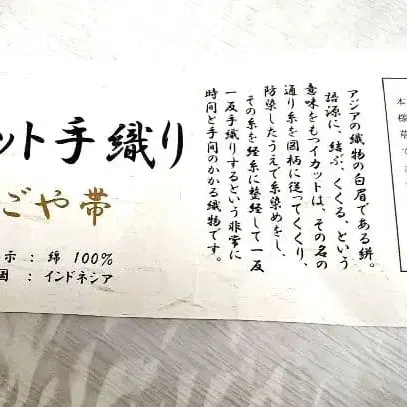 ット手織り
ごや帯
示：綿 100%
国：インドネシア
アジアの織物の白眉である絣。
語源に、結ぶ、くくる、という
意味をもつイカットは、その名の
通り糸を図柄に従ってくくり、
防染したうえで糸染めをし、
その糸を経糸に整経して一反
一反手織りするという非常に
時間と手間のかかる織物です。